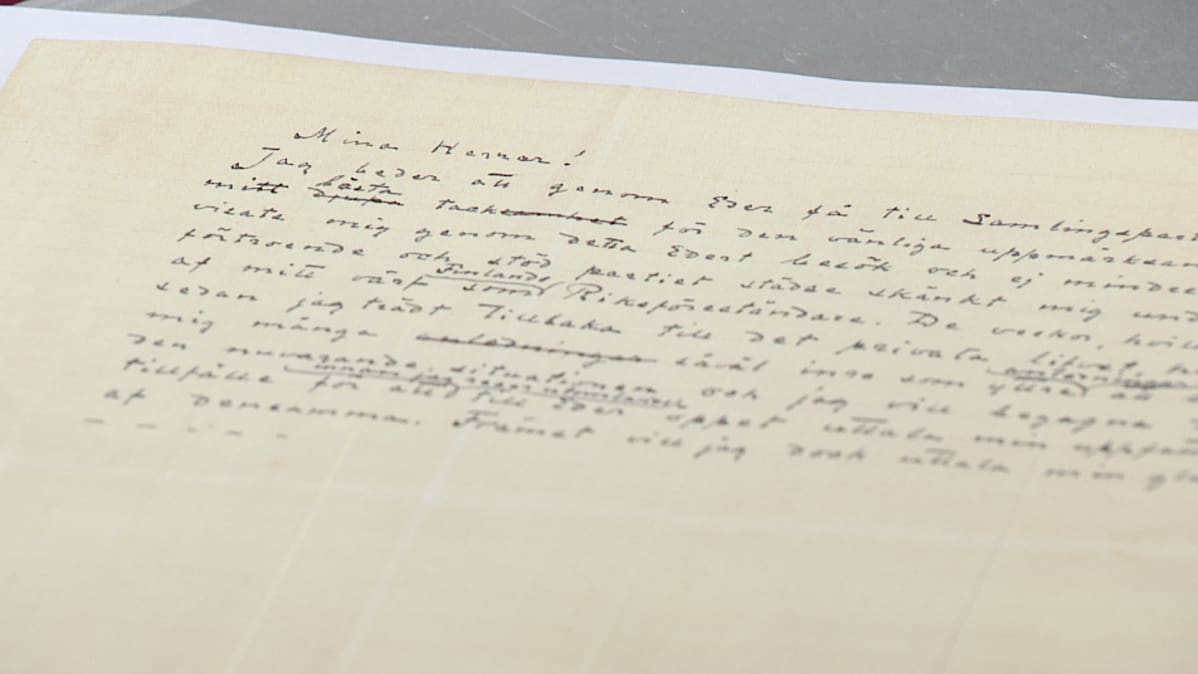 Mina Herrar!
Jag beder att genom Eder få till Samlingspart
bästa
mitt djupa tacksamhet för den vänliga uppmärksam
visats mig genom detta Edert besök och ej mindre
förtroende och stöd partiet städse skänkt mig und
Finlands
af mitt värf som Riksföreståndare. De veckor, hvil
sedan jag trädt tillbaka till det privata lifvet, h
mig många anledningar såväl inre som yttre att
den nuvarande situationen och jag vill begagna
tillfälle för att till Eder öppet uttala min uppfatt
af densamma. Främst vill jag dock uttala min gl